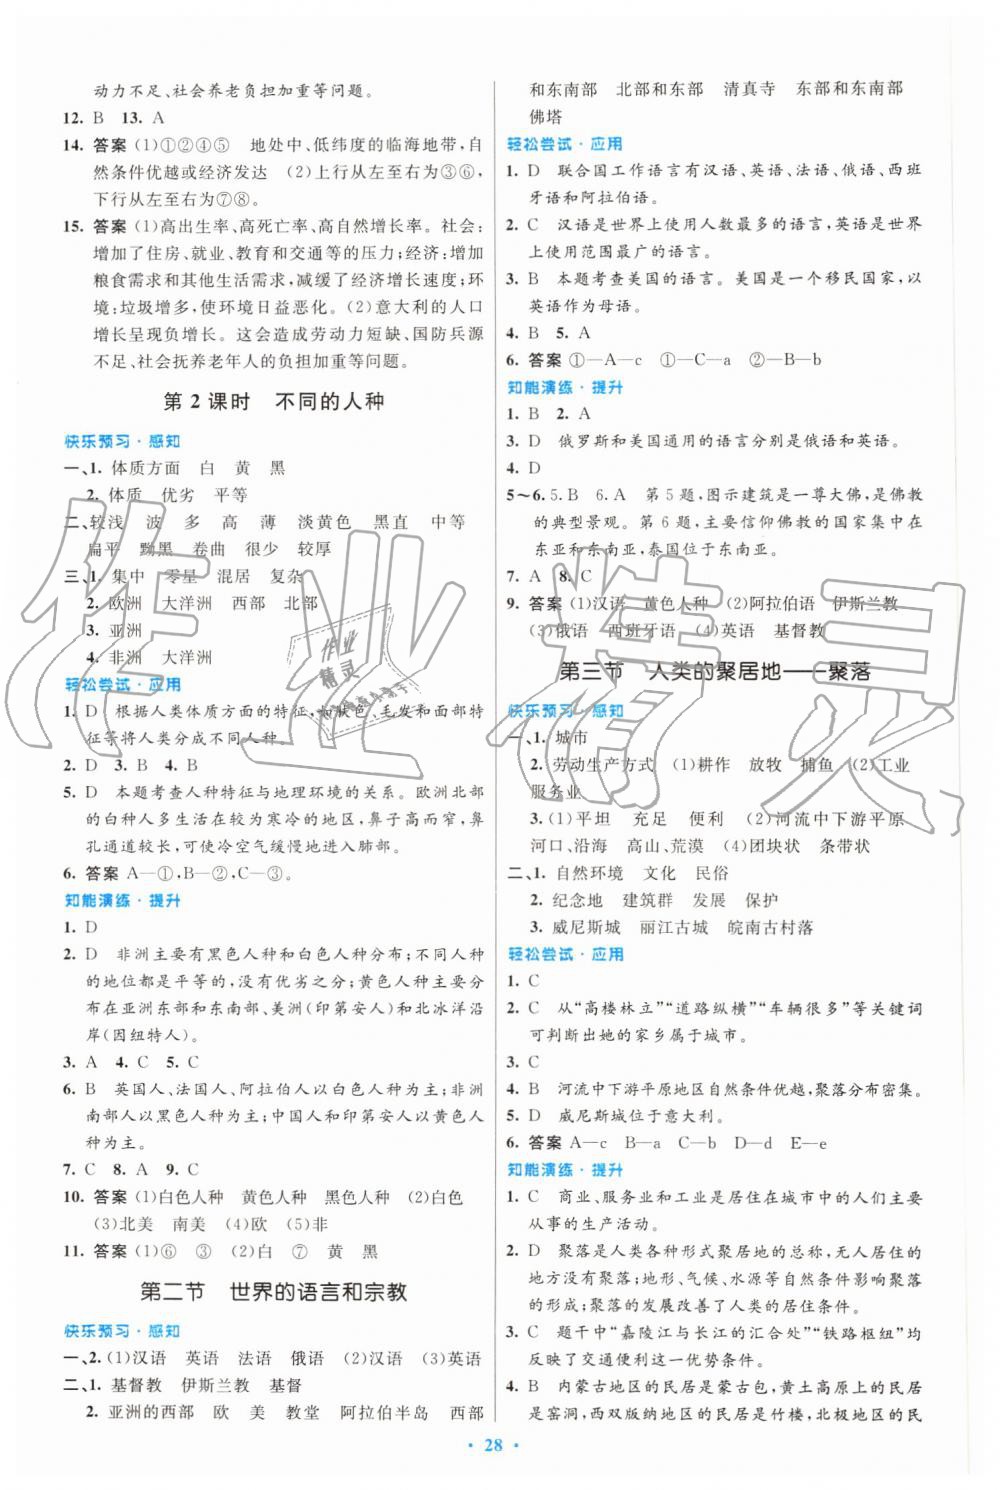 动力不足、社会养老负担加重等问题。
12. B 13. A
14. 答案 (1)①②④⑤ 地处中、低纬度的临海地带,自
然条件优越或经济发达 (2)上行从左至右为③⑥,
下行从左至右为⑦⑧。
15. 答案 (1)高出生率、高死亡率、高自然增长率。社会:
增加了住房、就业、教育和交通等的压力;经济:增加
粮食需求和其他生活需求,减缓了经济增长速度;环
境:垃圾增多,使环境日益恶化。(2)意大利的人口
增长呈现负增长。这会造成劳动力短缺、国防兵源
不足、社会抚养老年人的负担加重等问题。
第2课时 不同的人种
快乐预习·感知
一、1. 体质方面 白 黄 黑
2. 体质 优劣 平等
二、较浅 波 多 高 薄 淡黄色 黑直 中等
扁平 黝黑 卷曲 很少 较厚
三、1. 集中 零星 混居 复杂
2. 欧洲 大洋洲 西部 北部
3. 亚洲
4. 非洲 大洋洲
轻松尝试·应用
1. D 根据人类体质方面的特征,如肤色、毛发和面部特
征等将人类分成不同人种。
2. D 3. B 4. B
5. D 本题考查人种特征与地理环境的关系。欧洲北部
的白种人多生活在较为寒冷的地区,鼻子高而窄,鼻
孔通道较长,可使冷空气缓慢地进入肺部。
6. 答案 A—①,B—②,C—③。
知能演练·提升
1. D
2. D 非洲主要有黑色人种和白色人种分布;不同人种
的地位都是平等的,没有优劣之分;黄色人种主要分
布在亚洲东部和东南部、美洲(印第安人)和北冰洋沿
岸(因纽特人)。
3. A 4. C 5. C
6. B 英国人、法国人、阿拉伯人以白种人为主;非洲
南部人以黑色人种为主;中国人和印第安人以黄色人
种为主。
7. C 8. A 9. C
10. 答案 (1)白色人种 黄色人种 黑色人种 (2)白色
(3)北美 南美 (4)欧 (5)非
11. 答案 (1)⑥ ③ (2)白 ⑦ 黄 黑
第二节 世界的语言和宗教
快乐预习·感知
一、2. (1)汉语 英语 法语 俄语 (2)汉语 (3)英语
二、1. 基督教 伊斯兰教 基督
2. 亚洲的西部 欧 美 教堂 阿拉伯半岛 西部
和东南部 北部和东部 清真寺 东部和东南部
佛塔
轻松尝试·应用
1. D 联合国工作语言有汉语、英语、法语、俄语、西班
牙语和阿拉伯语。
2. C 汉语是世界上使用人数最多的语言,英语是世界
上使用范围最广的语言。
3. B 本题考查美国的语言。美国是一个移民国家,以
英语作为母语。
4. B 5. A
6. 答案 ①—A—c ③—C—a ②—B—b
知能演练·提升
1. B 2. A
3. D 俄罗斯和美国通用的语言分别是俄语和英语。
4. D
5~6. 5. B 6. A 第5题,图示建筑是一尊大佛,是佛教
的典型景观。第6题,主要信仰佛教的国家集中在
东亚和东南亚,泰国位于东南亚。
7. A 8. C
9. 答案 (1)汉语 黄色人种 (2)阿拉伯语 伊斯兰教
(3)俄语 西班牙语 (4)英语 基督教
第三节 人类的聚居地——聚落
快乐预习·感知
一、1. 城市
2. 劳动生产方式 (1)耕作 放牧 捕鱼 (2)工业
服务业
3. (1)平坦 充足 便利 (2)河流中下游平原
河口、沿海 高山、荒漠 (4)团块状 条带状
二、1. 自然环境 文化 民俗
2. 纪念地 建筑群 发展 保护
3. 威尼斯城 丽江古城 皖南古村落
轻松尝试·应用
1. C
2. C 从“高楼林立”“道路纵横”“车辆很多”等关键词
可判断出她的家乡属于城市。
3. C
4. B 河流中下游平原地区自然条件优越,聚落分布密集。
5. D 威尼斯城位于意大利。
6. 答案 A—c B—a C—b D—d E—e
知能演练·提升
1. C 商业、服务业和工业是居住在城市中的人们主要
从事的生产活动。
2. D 聚落是人类各种形式聚居地的总称,无人居住的
地方没有聚落;地形、气候、水源等自然条件影响聚落
的形成;聚落的发展改善了人类的居住条件。
3. C 题干中“嘉陵江与长江的汇合处”“铁路枢纽”均
反映了交通便利这一优势条件。
4. B 内蒙古地区的民居是蒙古包,黄土高原上的民居
是窑洞,西双版纳地区的民居是竹楼,北极地区的民
· 28 ·
作业精灵
作业
精灵